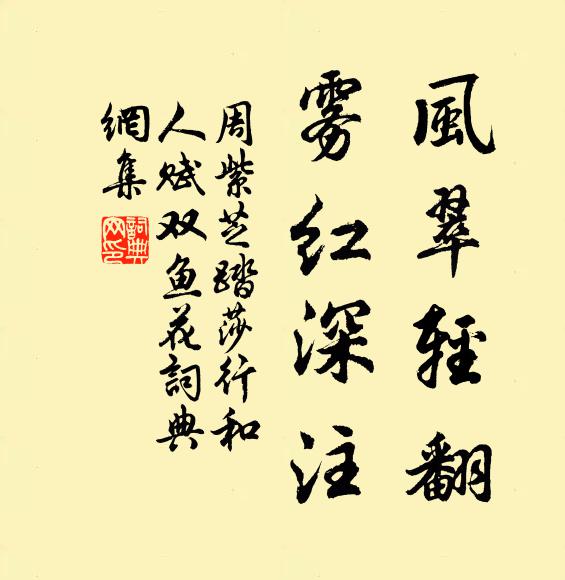 風翠輕翻
雾红深注
周紫芝踏莎行和
人赋双鱼花詞典
網集
詞典
网印